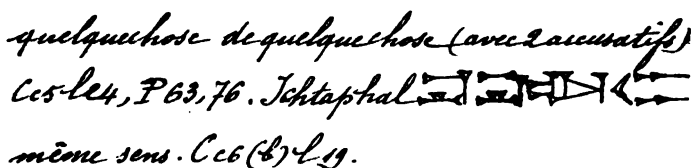 quelquechose de quelquechose (avec 2 accusatifs)
Cc5 l 24, P 63, 76. Ichtaphal
même sens. Cc6 (b) l 19.